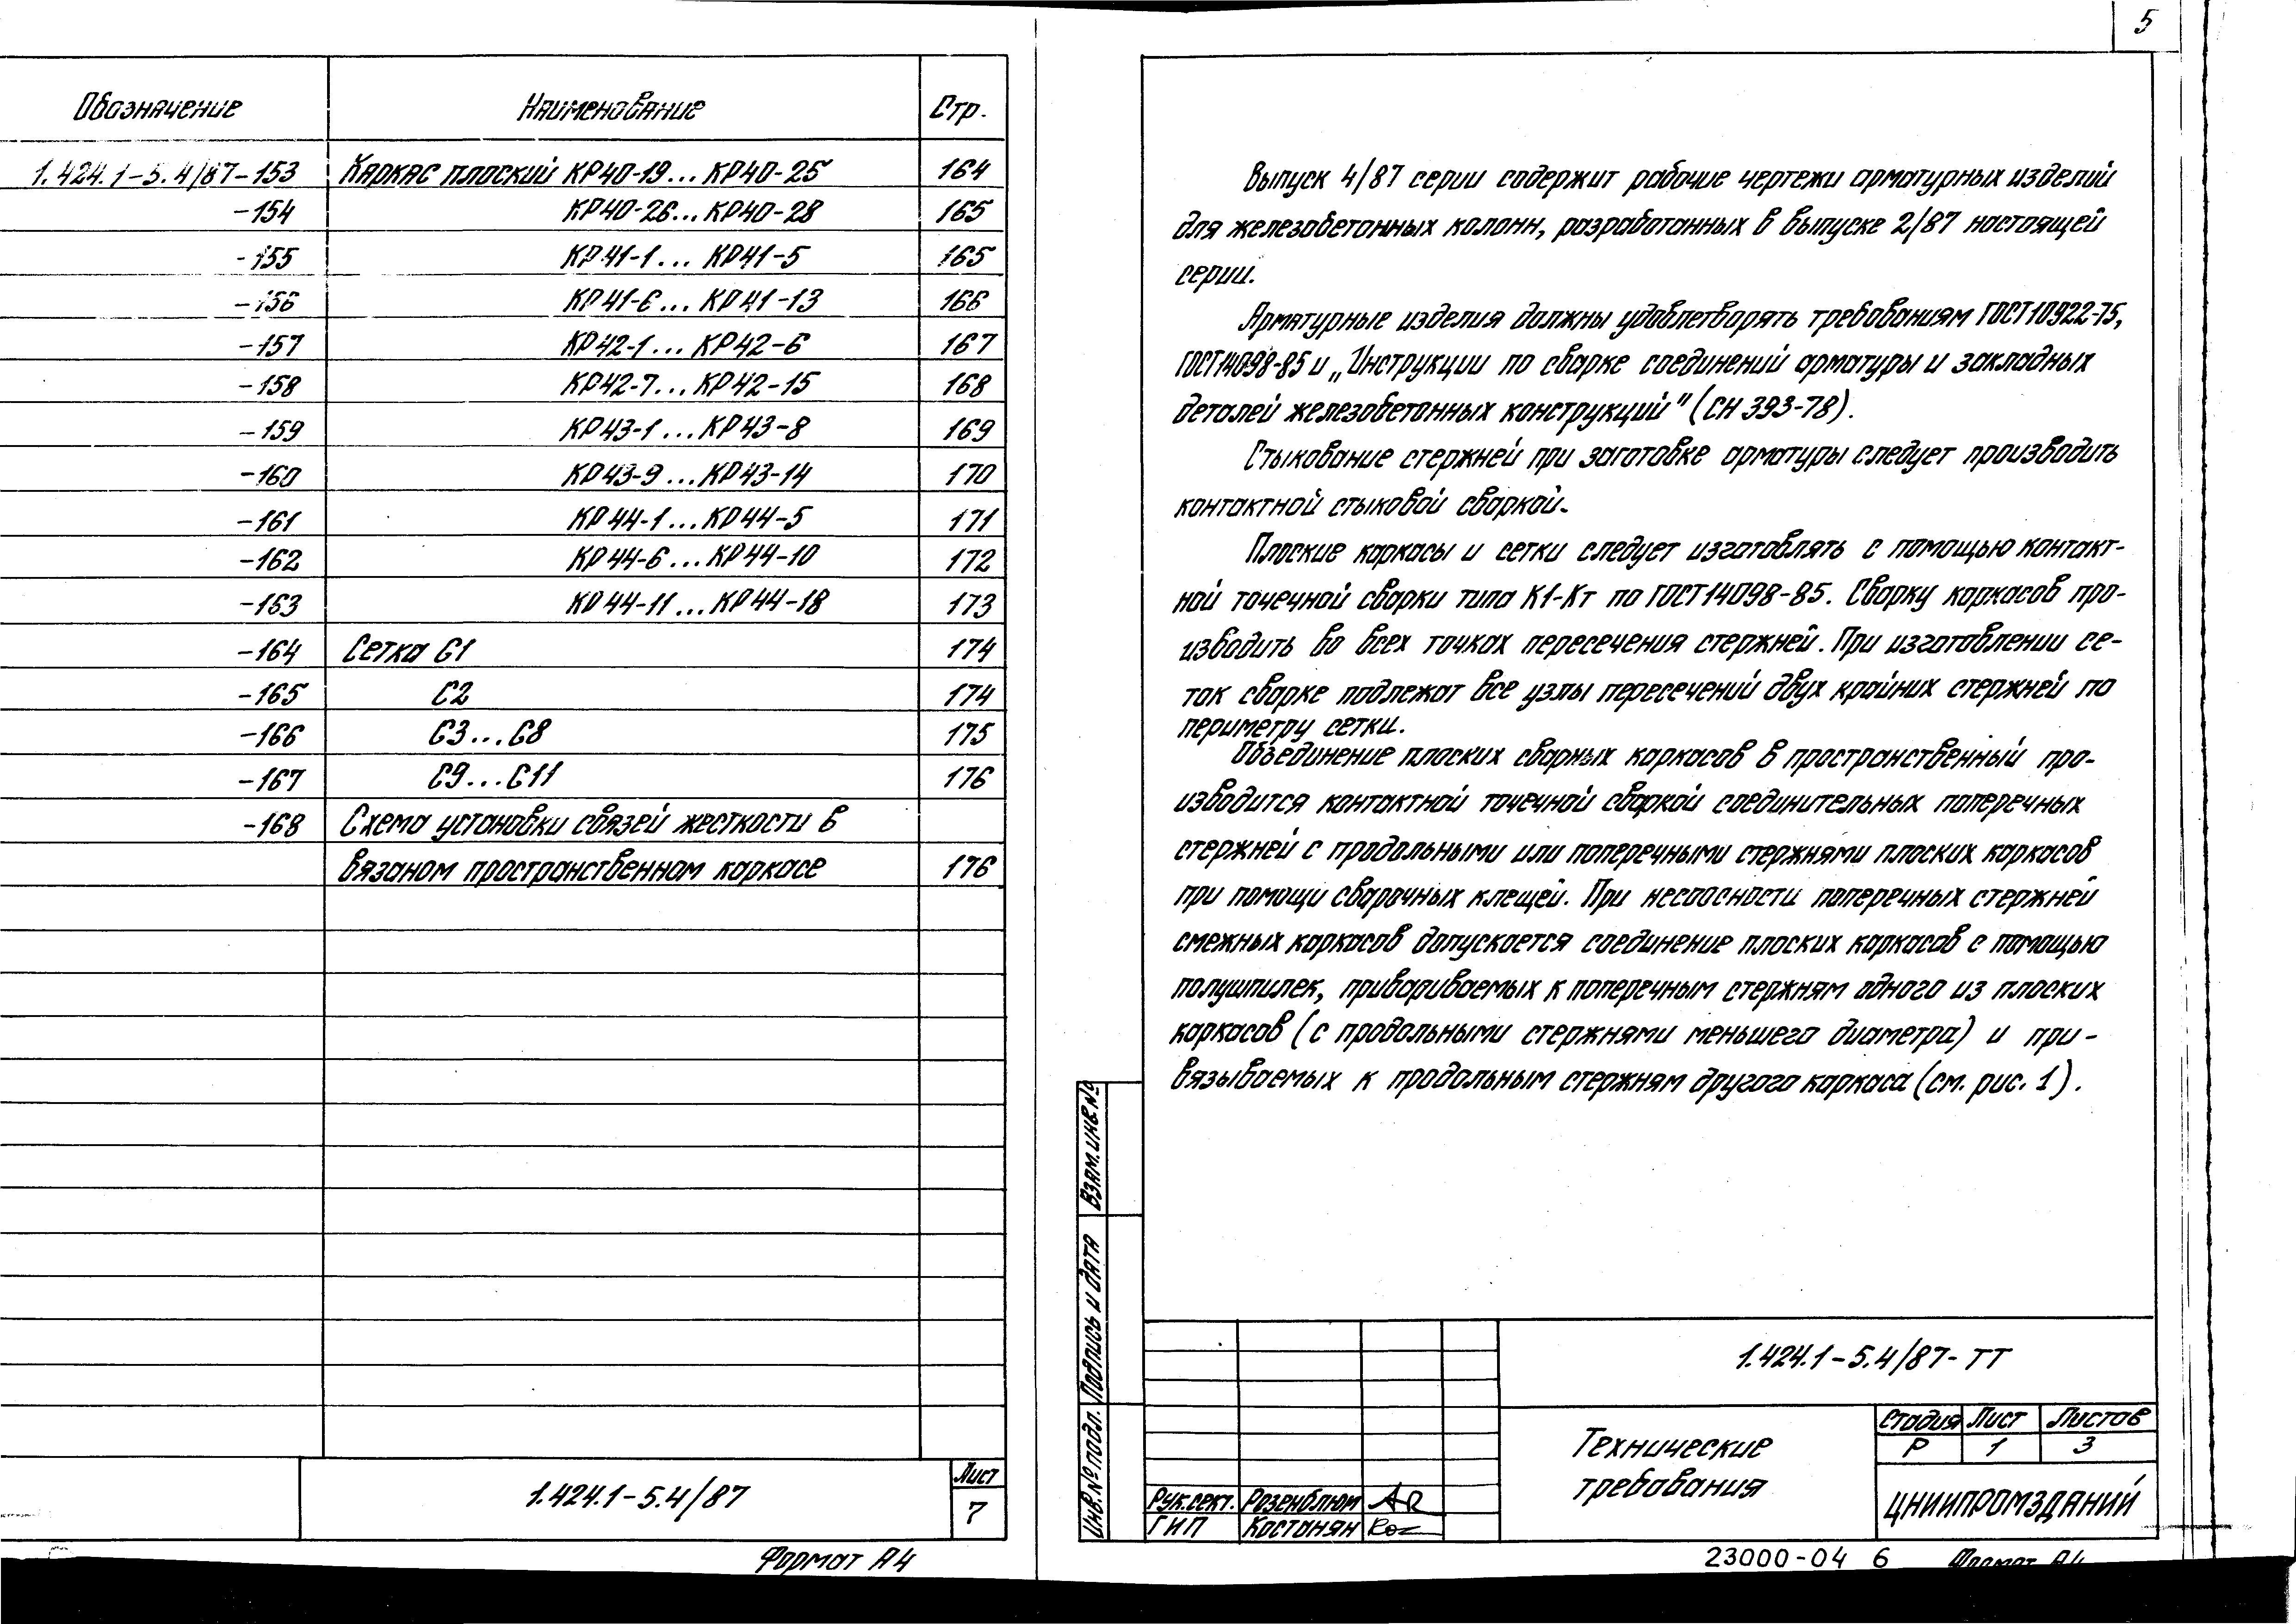 5
Обозначение Наименование Стр.
1.424.1-5.4/87-153 Каркас плоский КР40-19...КР40-25 164
-154 КР40-26...КР40-28 165
-155 КР41-1... КР41-5 165
-156 КР41-6... КР41-13 166
-157 КР42-1... КР42-6 167
-158 КР42-7... КР42-15 168
-159 КР43-1...КР43-8 169
-160 КР43-9...КР43-14 170
-161 КР44-1...КР44-5 171
-162 КР44-6...КР44-10 172
-163 КР44-11...КР44-18 173
-164 Сетка С1 174
-165 С2 174
-166 С3...С8 175
-167 С9...С11 176
-168 Схема установки связей жесткости в
вязаном пространственном каркасе 176
1.424.1-5.4/87
Лист
7
Формат А4
Выпуск 4/87 серии содержит рабочие чертежи арматурных изделий
для железобетонных колонн, разработанных в выпуске 2/87 настоящей
серии.
Арматурные изделия должны удовлетворять требованиям ГОСТ10922-75,
ГОСТ14098-85 и „Инструкции по сварке соединений арматуры и закладных
деталей железобетонных конструкций" (СН 393-78).
Стыкование стержней при заготовке арматуры следует производить
контактной стыковой сваркой.
Плоские каркасы и сетки следует изготовлять с помощью контакт-
ной точечной сварки типа К1-Кт по ГОСТ14098-85. Сварку каркасов про-
изводить во всех точках пересечения стержней. При изготовлении се-
ток сварке подлежат все узлы пересечений двух крайних стержней по
периметру сетки.
Объединение плоских сварных каркасов в пространственный про-
изводится контактной точечной сваркой соединительных поперечных
стержней с продольными или поперечными стержнями плоских каркасов
при помощи сварочных клещей. При несоосности поперечных стержней
смежных каркасов допускается соединение плоских каркасов с помощью
полушпилек, привариваемых к поперечным стержням одного из плоских
каркасов (с продольными стержнями меньшего диаметра) и при-
вязываемых к продольным стержням другого каркаса (см. рис. 1).
Взам.инв.№
Подпись и дата
Инв.№подл.
1.424.1-5.4/87-ТТ
Технические
требования
Стадия Лист Листов
Р 1 3
ЦНИИПРОМЗДАНИЙ
Рук.сект. Розенблюм
ГИП Костанян
23000-04 6 Формат А4